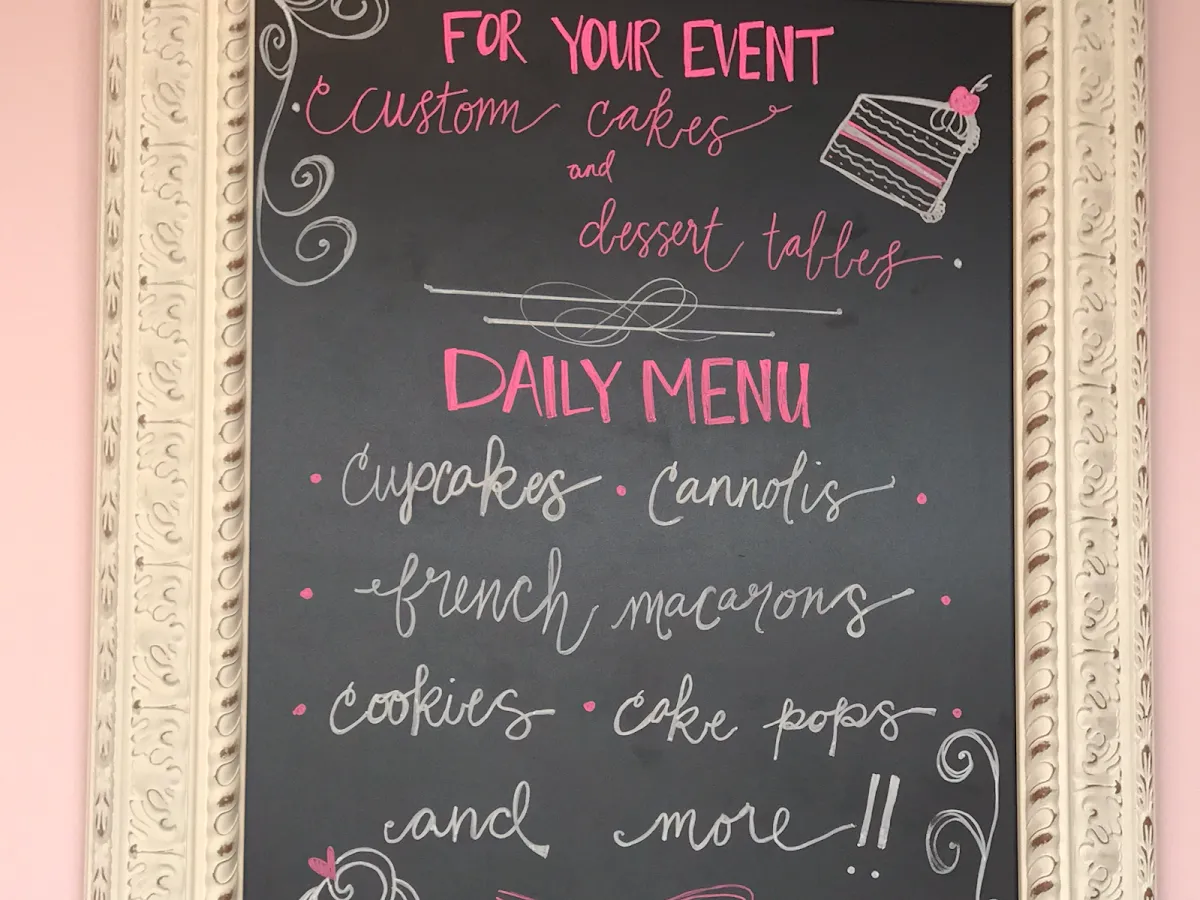 FOR YOUR EVENT
• Custom cakes
and
dessert tables •
DAILY MENU
• Cupcakes • Cannolis •
• french macarons •
• cookies • cake pops •
and more!!